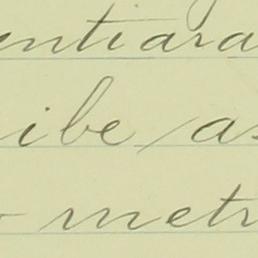 entiara
ibe as
metr